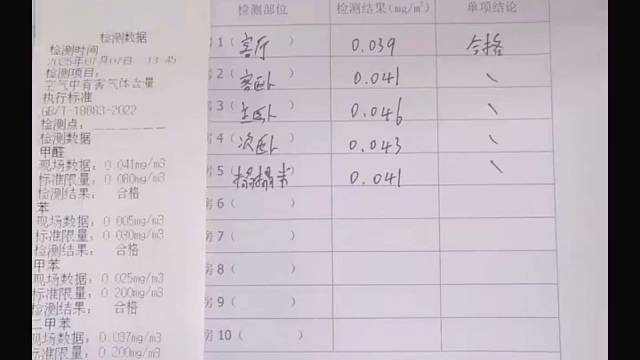 检测数据
检测时间
2025年07月07日 13:45
检测项目:
空气中有害气体含量
执行标准
GB/T-18883-2022
检测点:
检测数据
甲醛
现场数据: 0.041mg/m3
标准限量: 0.080mg/m3
检测结果: 合格
苯
现场数据: 0.005mg/m3
标准限量: 0.030mg/m3
检测结果: 合格
甲苯
现场数据: 0.025mg/m3
标准限量: 0.200mg/m3
检测结果: 合格
二甲苯
现场数据: 0.037mg/m3
标准限量: 0.200mg/m3
检测部位 检测结果(mg/m³) 单项结论
房 1 ( 客厅 0.039 合格
房 2 ( 客卧 0.041 \
房 3 ( 主卧 0.046 \
房 4 ( 次卧 0.043 \
房 5 ( 榻榻米 0.041 \
房 6 ( )
房 7 ( )
房 8 ( )
房 9 ( )
房 10 ( )